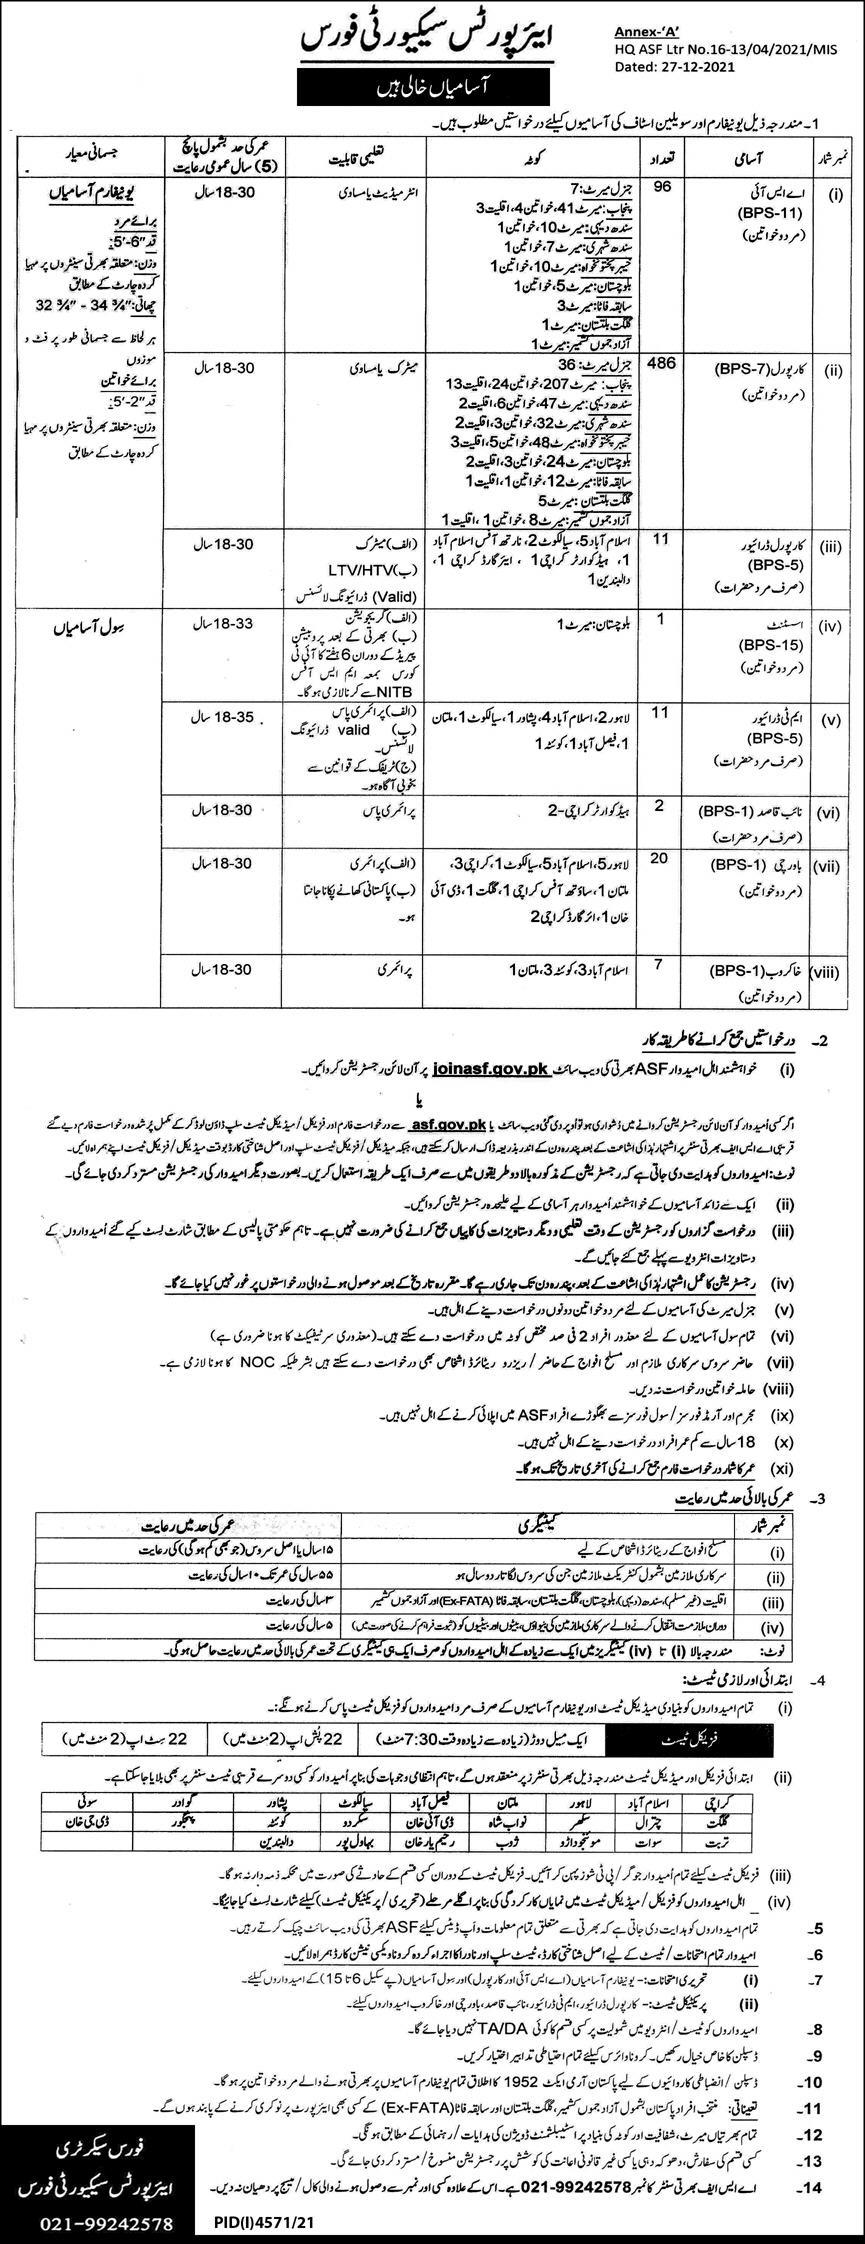 ایئرپورٹس سیکیورٹی فورس
آسامیاں خالی ہیں
Annex-‘A’
HQ ASF Ltr No.16-13/04/2021/MIS
Dated: 27-12-2021
1- مندرجہ ذیل یونیفارم اور سویلین اسٹاف کی آسامیوں کیلئے درخواستیں مطلوب ہیں۔
نمبر شمار آسامی تعداد کوٹہ تعلیمی قابلیت عمر کی حد بشمول پانچ (5) سال عمومی رعایت جسمانی معیار
(i) اے ایس آئی (BPS-11) (مرد و خواتین) 96
جنرل میرٹ: 7
پنجاب: میرٹ 41، خواتین 4، اقلیت 3
سندھ دیہی: میرٹ 10، خواتین 1
سندھ شہری: میرٹ 7، خواتین 1
خیبر پختونخواہ: میرٹ 10، خواتین 1
بلوچستان: میرٹ 5، خواتین 1
سابقہ فاٹا: میرٹ 3
گلگت بلتستان: میرٹ 1
آزاد جموں کشمیر: میرٹ 1
انٹرمیڈیٹ یا مساوی
18-30 سال
یونیفارم آسامیاں
برائے مرد
قد: 5’-6”
وزن: متعلقہ بھرتی سینٹروں پر مہیا
کردہ چارٹ کے مطابق
چھاتی: 32 ¾” - 34 ¾”
ہر لحاظ سے جسمانی طور پر فٹ و
موزوں
برائے خواتین
قد: 5’-2”
وزن: متعلقہ بھرتی سینٹروں پر مہیا
کردہ چارٹ کے مطابق
(ii) کارپورل (BPS-7) (مرد و خواتین) 486
جنرل میرٹ: 36
پنجاب: میرٹ 207، خواتین 24، اقلیت 13
سندھ دیہی: میرٹ 47، خواتین 6، اقلیت 2
سندھ شہری: میرٹ 32، خواتین 3، اقلیت 2
خیبر پختونخواہ: میرٹ 48، خواتین 5، اقلیت 3
بلوچستان: میرٹ 24، خواتین 3، اقلیت 2
سابقہ فاٹا: میرٹ 12، خواتین 1، اقلیت 1
گلگت بلتستان: میرٹ 5
آزاد جموں کشمیر: میرٹ 8، خواتین 1، اقلیت 1
میٹرک یا مساوی
18-30 سال
(iii) کارپورل ڈرائیور (BPS-5) (صرف مرد حضرات) 11
اسلام آباد 5، سیالکوٹ 2، نارتھ آفس اسلام آباد
1، ہیڈ کوارٹر کراچی 1، ایئر گارڈ کراچی 1،
دالبندین 1
(الف) میٹرک
(ب) LTV/HTV
(Valid) ڈرائیونگ لائسنس
18-30 سال
(iv) اسسٹنٹ (BPS-15) (مرد و خواتین) 1
بلوچستان: میرٹ 1
(الف) گریجویشن
(ب) بھرتی کے بعد پروبیشن
پیریڈ کے دوران 6 ہفتے کا آئی ٹی
کورس بمعہ ایم ایس آفس
NITB سے کرنا لازمی ہوگا۔
18-33 سال
سول آسامیاں
(v) ایم ٹی ڈرائیور (BPS-5) (صرف مرد حضرات) 11
لاہور 2، اسلام آباد 4، پشاور 1، سیالکوٹ 1، ملتان
1، فیصل آباد 1، کوئٹہ 1
(الف) پرائمری پاس
(ب) valid ڈرائیونگ
لائسنس۔
(ج) ٹریفک کے قوانین سے
بخوبی آگاہ ہو۔
18-35 سال
(vi) نائب قاصد (BPS-1) (صرف مرد حضرات) 2
ہیڈ کوارٹر کراچی-2
پرائمری پاس
18-30 سال
(vii) باورچی (BPS-1) (مرد و خواتین) 20
لاہور 5، اسلام آباد 5، سیالکوٹ 1، کراچی 3،
ملتان 1، ساؤتھ آفس کراچی 1، گلگت 1، ڈی آئی
خان 1، ائر گارڈ کراچی 2
(الف) پرائمری
(ب) پاکستانی کھانے پکانا جانتا
ہو۔
18-30 سال
(viii) خاکروب (BPS-1) (مرد و خواتین) 7
اسلام آباد 3، کوئٹہ 3، ملتان 1
پرائمری
18-30 سال
2- درخواستیں جمع کرانے کا طریقہ کار
(i) خواہشمند اہل امیدوار ASF بھرتی کی ویب سائٹ joinasf.gov.pk پر آن لائن رجسٹریشن کروائیں۔
یا
اگر کسی اُمیدوار کو آن لائن رجسٹریشن کروانے میں دُشواری ہو تو اُوپر دی گئی ویب سائٹ یا asf.gov.pk سے درخواست فارم اور فزیکل/میڈیکل ٹیسٹ سلپ ڈاؤن لوڈ کر کے مکمل پُر شدہ درخواست فارم دیے گئے
قریبی اے ایس ایف بھرتی سنٹر پر اشتہار ہٰذا کی اشاعت کے بعد پندرہ دن کے اندر بذریعہ ڈاک ارسال کر سکتے ہیں، جبکہ میڈیکل/فزیکل ٹیسٹ سلپ اور اصل شناختی کارڈ بوقت میڈیکل/فزیکل ٹیسٹ اپنے ہمراہ لائیں۔
نوٹ: امیدواروں کو ہدایت دی جاتی ہے کہ رجسٹریشن کے مذکورہ بالا دو طریقوں میں سے صرف ایک طریقہ استعمال کریں۔ بصورت دیگر امیدوار کی رجسٹریشن مسترد کر دی جائے گی۔
(ii) ایک سے زائد آسامیوں کے خواہشمند اُمیدوار ہر آسامی کے لیے علیحدہ رجسٹریشن کروائیں۔
(iii) درخواست گزاروں کو رجسٹریشن کے وقت تعلیمی و دیگر دستاویزات کی کاپیاں جمع کرانے کی ضرورت نہیں ہے۔ تاہم حکومتی پالیسی کے مطابق شارٹ لسٹ کیے گئے اُمیدواروں کے
دستاویزات انٹرویو سے پہلے جمع کئے جائیں گے۔
(iv) رجسٹریشن کا عمل اشتہار ہٰذا کی اشاعت کے بعد، پندرہ دن تک جاری رہے گا۔ مقررہ تاریخ کے بعد موصول ہونے والی درخواستوں پر غور نہیں کیا جائے گا۔
(v) جنرل میرٹ کی آسامیوں کے لئے مرد و خواتین دونوں درخواست دینے کے اہل ہیں۔
(vi) تمام سول آسامیوں کے لئے معذور افراد 2 فی صد مختص کوٹہ میں درخواست دے سکتے ہیں۔ (معذوری سرٹیفکیٹ کا ہونا ضروری ہے)
(vii) حاضر سروس سرکاری ملازم اور مسلح افواج کے حاضر/ریزرو ریٹائرڈ اشخاص بھی درخواست دے سکتے ہیں بشرطیکہ NOC کا ہونا لازمی ہے۔
(viii) حاملہ خواتین درخواست نہ دیں۔
(ix) مجرم اور آرمڈ فورسز/سول فورسز سے بھگوڑے افراد ASF میں اپلائی کرنے کے اہل نہیں ہیں۔
(x) 18 سال سے کم عمر افراد درخواست دینے کے اہل نہیں ہیں۔
(xi) عمر کا شمار درخواست فارم جمع کرانے کی آخری تاریخ تک ہوگا۔
3- عمر کی بالائی حد میں رعایت
نمبر شمار کیٹیگری عمر کی حد میں رعایت
(i) مسلح افواج کے ریٹائرڈ اشخاص کے لیے ۱۵ سال یا اصل سروس (جو بھی کم ہوگی) کی رعایت
(ii) سرکاری ملازمین بشمول کنٹریکٹ ملازمین جن کی سروس لگاتار دو سال ہو ۵۵ سال کی عمر تک ۱۰ سال کی رعایت
(iii) اقلیت (غیر مسلم)، سندھ (دیہی)، بلوچستان، گلگت بلتستان، سابقہ فاٹا (Ex-FATA) اور آزاد جموں کشمیر ۳ سال کی رعایت
(iv) دوران ملازمت انتقال کرنے والے سرکاری ملازمین کی بیواؤں، بیٹوں اور بیٹیوں کو (ثبوت فراہم کرنے کی صورت میں) ۵ سال کی رعایت
نوٹ: مندرجہ بالا (i) تا (iv) کیٹیگریز میں ایک سے زیادہ کے اہل امیدواروں کو صرف ایک ہی کیٹیگری کے تحت عمر کی بالائی حد میں رعایت حاصل ہوگی۔
4- ابتدائی اور لازمی ٹیسٹ:
(i) تمام امیدواروں کو بنیادی میڈیکل ٹیسٹ اور یونیفارم آسامیوں کے صرف مرد امیدواروں کو فزیکل ٹیسٹ پاس کرنے ہونگے:۔
فزیکل ٹیسٹ ایک میل دوڑ (زیادہ سے زیادہ وقت 7:30 منٹ) 22 پُش اپ (2 منٹ میں) 22 سٹ اپ (2 منٹ میں)
(ii) ابتدائی فزیکل اور میڈیکل ٹیسٹ مندرجہ ذیل بھرتی سنٹرز پر منعقد ہوں گے، تاہم انتظامی وجوہات کی بنا پر اُمیدوار کو کسی دوسرے قریبی ٹیسٹ سنٹر پر بھی بلایا جا سکتا ہے۔
کراچی اسلام آباد لاہور ملتان فیصل آباد سیالکوٹ پشاور گوادر سوئی
گلگت چترال سکھر نواب شاہ ڈی آئی خان سکردو کوئٹہ پنجگور ڈی جی خان
تربت سوات موئنجوداڑو ژوب رحیم یار خان بہاول پور دالبندین
(iii) فزیکل ٹیسٹ کیلئے تمام اُمیدوار جوگر/پی ٹی شوز پہن کر آئیں۔ فزیکل ٹیسٹ کے دوران کسی قسم کے حادثے کی صورت میں محکمہ ذمہ دار نہ ہوگا۔
(iv) اہل امیدواروں کو فزیکل/میڈیکل ٹیسٹ میں نمایاں کارکردگی کی بنا پر اگلے مرحلے (تحریری/پریکٹیکل ٹیسٹ) کیلئے شارٹ لسٹ کیا جائیگا۔
5- تمام امیدواروں کو ہدایت دی جاتی ہے کہ بھرتی سے متعلق تمام معلومات و اَپ ڈیٹس کیلئے ASF بھرتی کی ویب سائٹ چیک کرتے رہیں۔
6- امیدوار تمام امتحانات/ٹیسٹ کے لیے اصل شناختی کارڈ، ٹیسٹ سلپ اور نادرا کا اجراء کردہ کرونا ویکسی نیشن کارڈ ہمراہ لائیں۔
7- (i) تحریری امتحانات:- یونیفارم آسامیاں (اے ایس آئی اور کارپورل) اور سول آسامیاں (پے سکیل 6 تا 15) کے امیدواروں کیلئے۔
(ii) پریکٹیکل ٹیسٹ:- کارپورل ڈرائیور، ایم ٹی ڈرائیور، نائب قاصد، باورچی اور خاکروب امیدواروں کیلئے۔
8- امیدواروں کو ٹیسٹ/انٹرویو میں شمولیت پر کسی قسم کا کوئی TA/DA نہیں دیا جائے گا۔
9- ڈسپلن کا خاص خیال رکھیں۔ کرونا وائرس کیلئے تمام احتیاطی تدابیر اختیار کریں۔
10- ڈسپلن/انضباطی کاروائیوں کے لیے پاکستان آرمی ایکٹ 1952 کا اطلاق تمام یونیفارم آسامیوں پر بھرتی ہونے والے مرد و خواتین پر ہوگا۔
11- تعیناتی: منتخب افراد پاکستان بشمول آزاد جموں کشمیر، گلگت بلتستان اور سابقہ فاٹا (Ex-FATA) کے کسی بھی ایئرپورٹ پر نوکری کرنے کے پابند ہوں گے۔
12- تمام بھرتیاں میرٹ، شفافیت اور کوٹہ کی بنیاد پر اسٹیبلشمنٹ ڈویژن کی ہدایات/رہنمائی کے مطابق ہونگی۔
13- کسی قسم کی سفارش، دھوکہ دہی یا کسی غیر قانونی اعانت کی کوشش پر رجسٹریشن منسوخ/مسترد کر دی جائے گی۔
14- اے ایس ایف بھرتی سنٹر کا نمبر 021-99242578 ہے۔ اس کے علاوہ کسی اور نمبر سے وصول ہونے والی کال/میسج پر دھیان نہ دیں۔
فورس سیکرٹری
ایئرپورٹس سیکیورٹی فورس
021-99242578
PID(I)4571/21